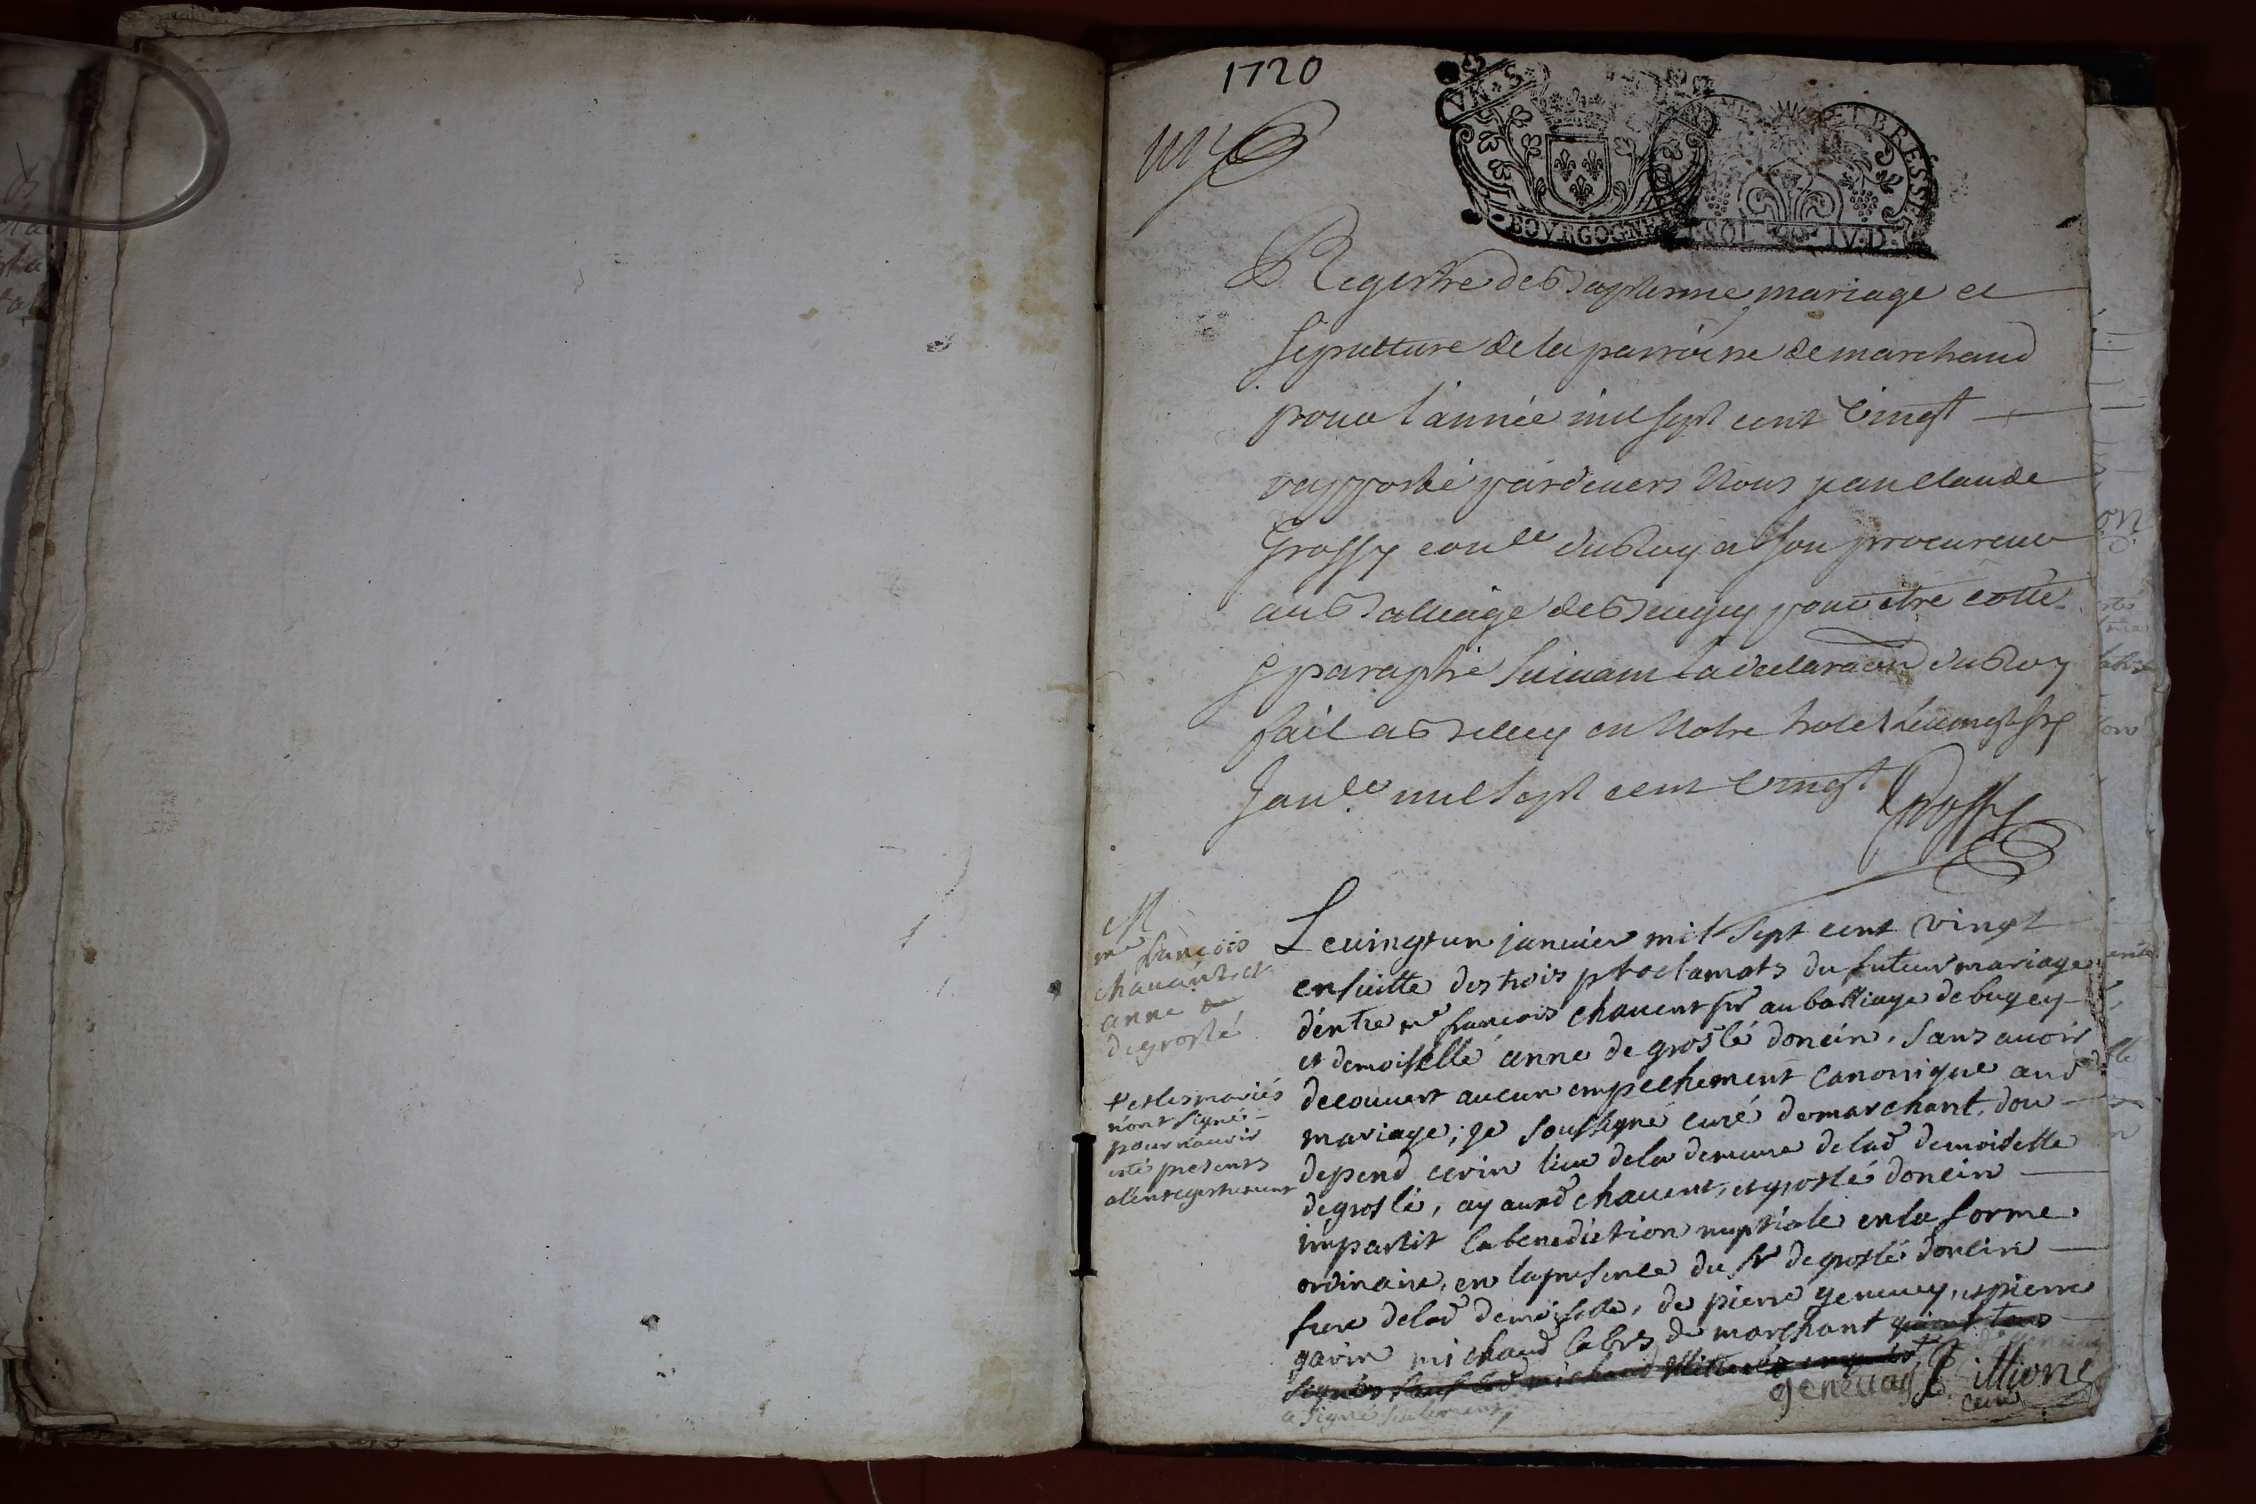 1720
BOVRGOGNE
ET BRESSE
SOL IV.D.
Registre de Baptesme mariage et
sepulture de la parroisse de marchand
pour l'année mil sept cent vingt
rapporté pardevers Nous jean claude
Grossy con.er du Roy et son procureur
au Baliage de Beugey pour etre cotte
& paraphé suivant la declaraõn du Roy
fait a Belley en Notre hotel le vingt six
Janv.er mil sept cent vingt
Grossy
M
me françois
chauant, et
anne de
de groslé
+ et les mariés
n'ont signé
pour n'auoir
esté presents
a l'enregistrement
Le uingt un januier mil sept cent vingt
ensuitte des trois proclamats du futeur mariage
d'entre me francois chauent pr au bailliage de bugey
et demoiselle anne de groslé doncin, sans auoir
decouuert aucun empechement canonique aud
mariage; je soussigne curé de marchant, dou
depend cerin lieu de la demeure de lad demoiselle
de groslé, ay auxd chauent, et groslé doncin
impartit la benediction nuptiale en la forme
ordinaire, en la presence du sr de groslé doncin
frere de lad demoiselle, de pierre geneuey, et pierre
gavin michaud labrs de marchant qui ont tous
signés sauf led michaud
a signé seulement,
geneuay
Billione
curé